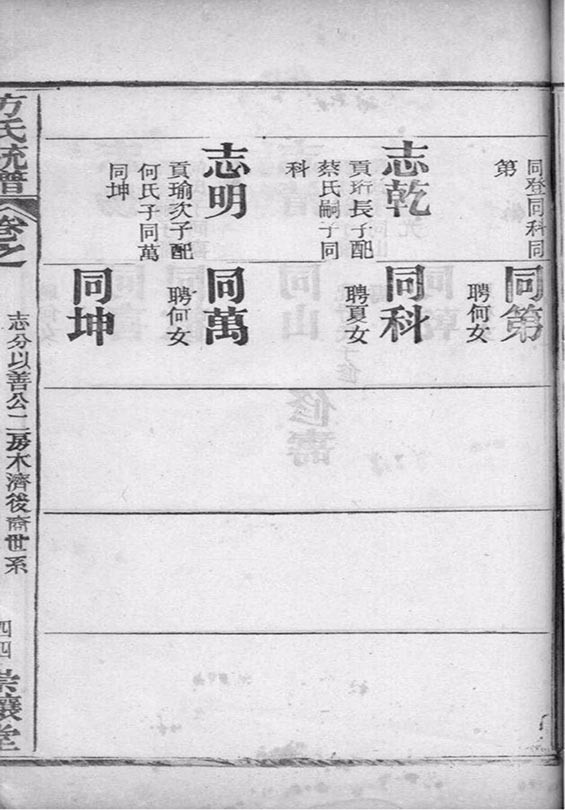 同登同科同
第
志乾
貢珩長子配
蔡氏嗣子同
科
志明
貢瑜次子配
何氏子同萬
同坤
同第
聘何女
同科
聘夏女
同萬
聘何女
同坤
方氏統譜
卷之
志分以善公二房木濟後裔世系
四四
堂